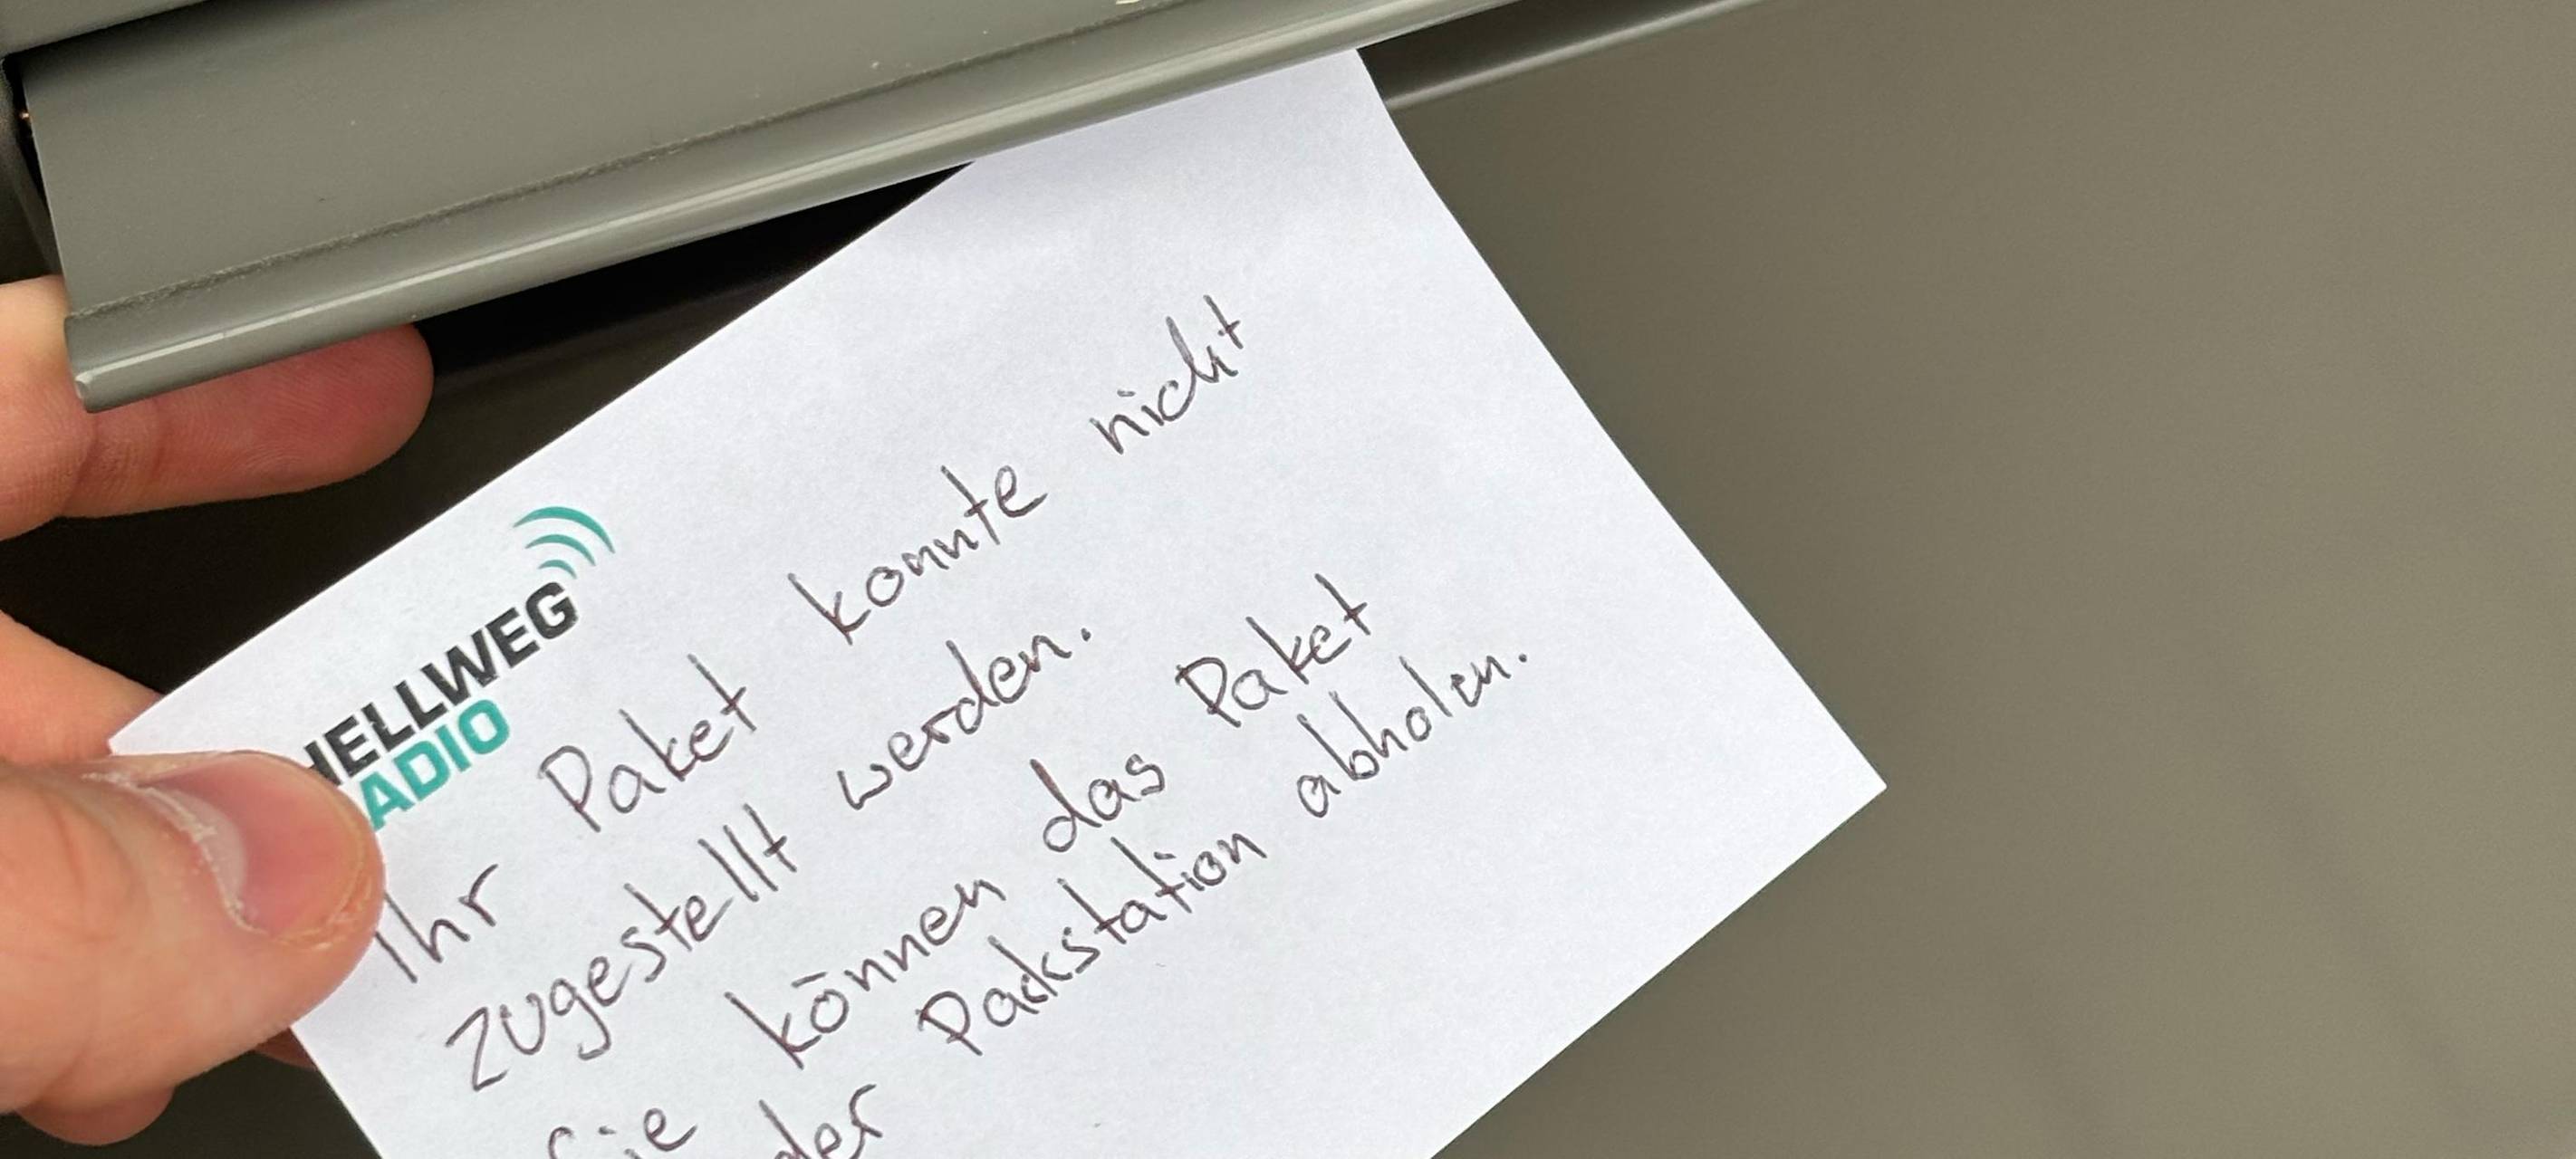 HELLWEG
ADIO
Ihr Paket konnte nicht
zugestellt werden.
Sie können das Paket
der Packstation abholen.